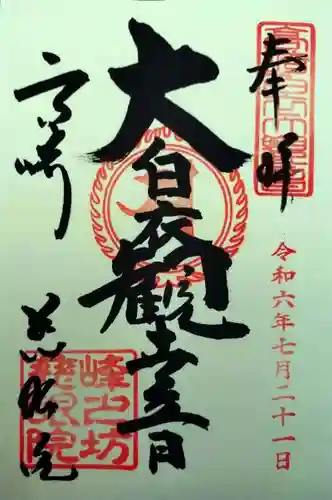 奉拝
令和六年七月二十一日
大白衣観世音
高崎
慈眼院
峰山坊
慈眼院